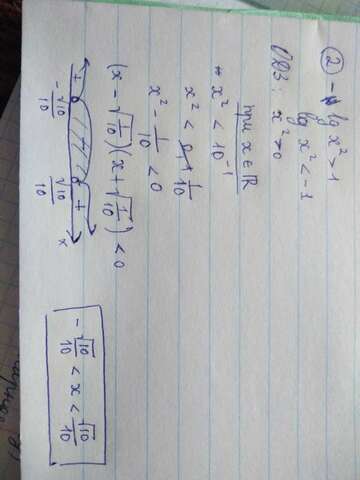 ② - lg x² > 1
lg x² < -1
ОДЗ: x² > 0
при x ∈ ℝ
x² < 10⁻¹
x² < 1/10
x² - 1/10 < 0
(x - √(1/10))(x + √(1/10)) < 0
+ - +
-√10/10 √10/10 x
-√10/10 < x < √10/10